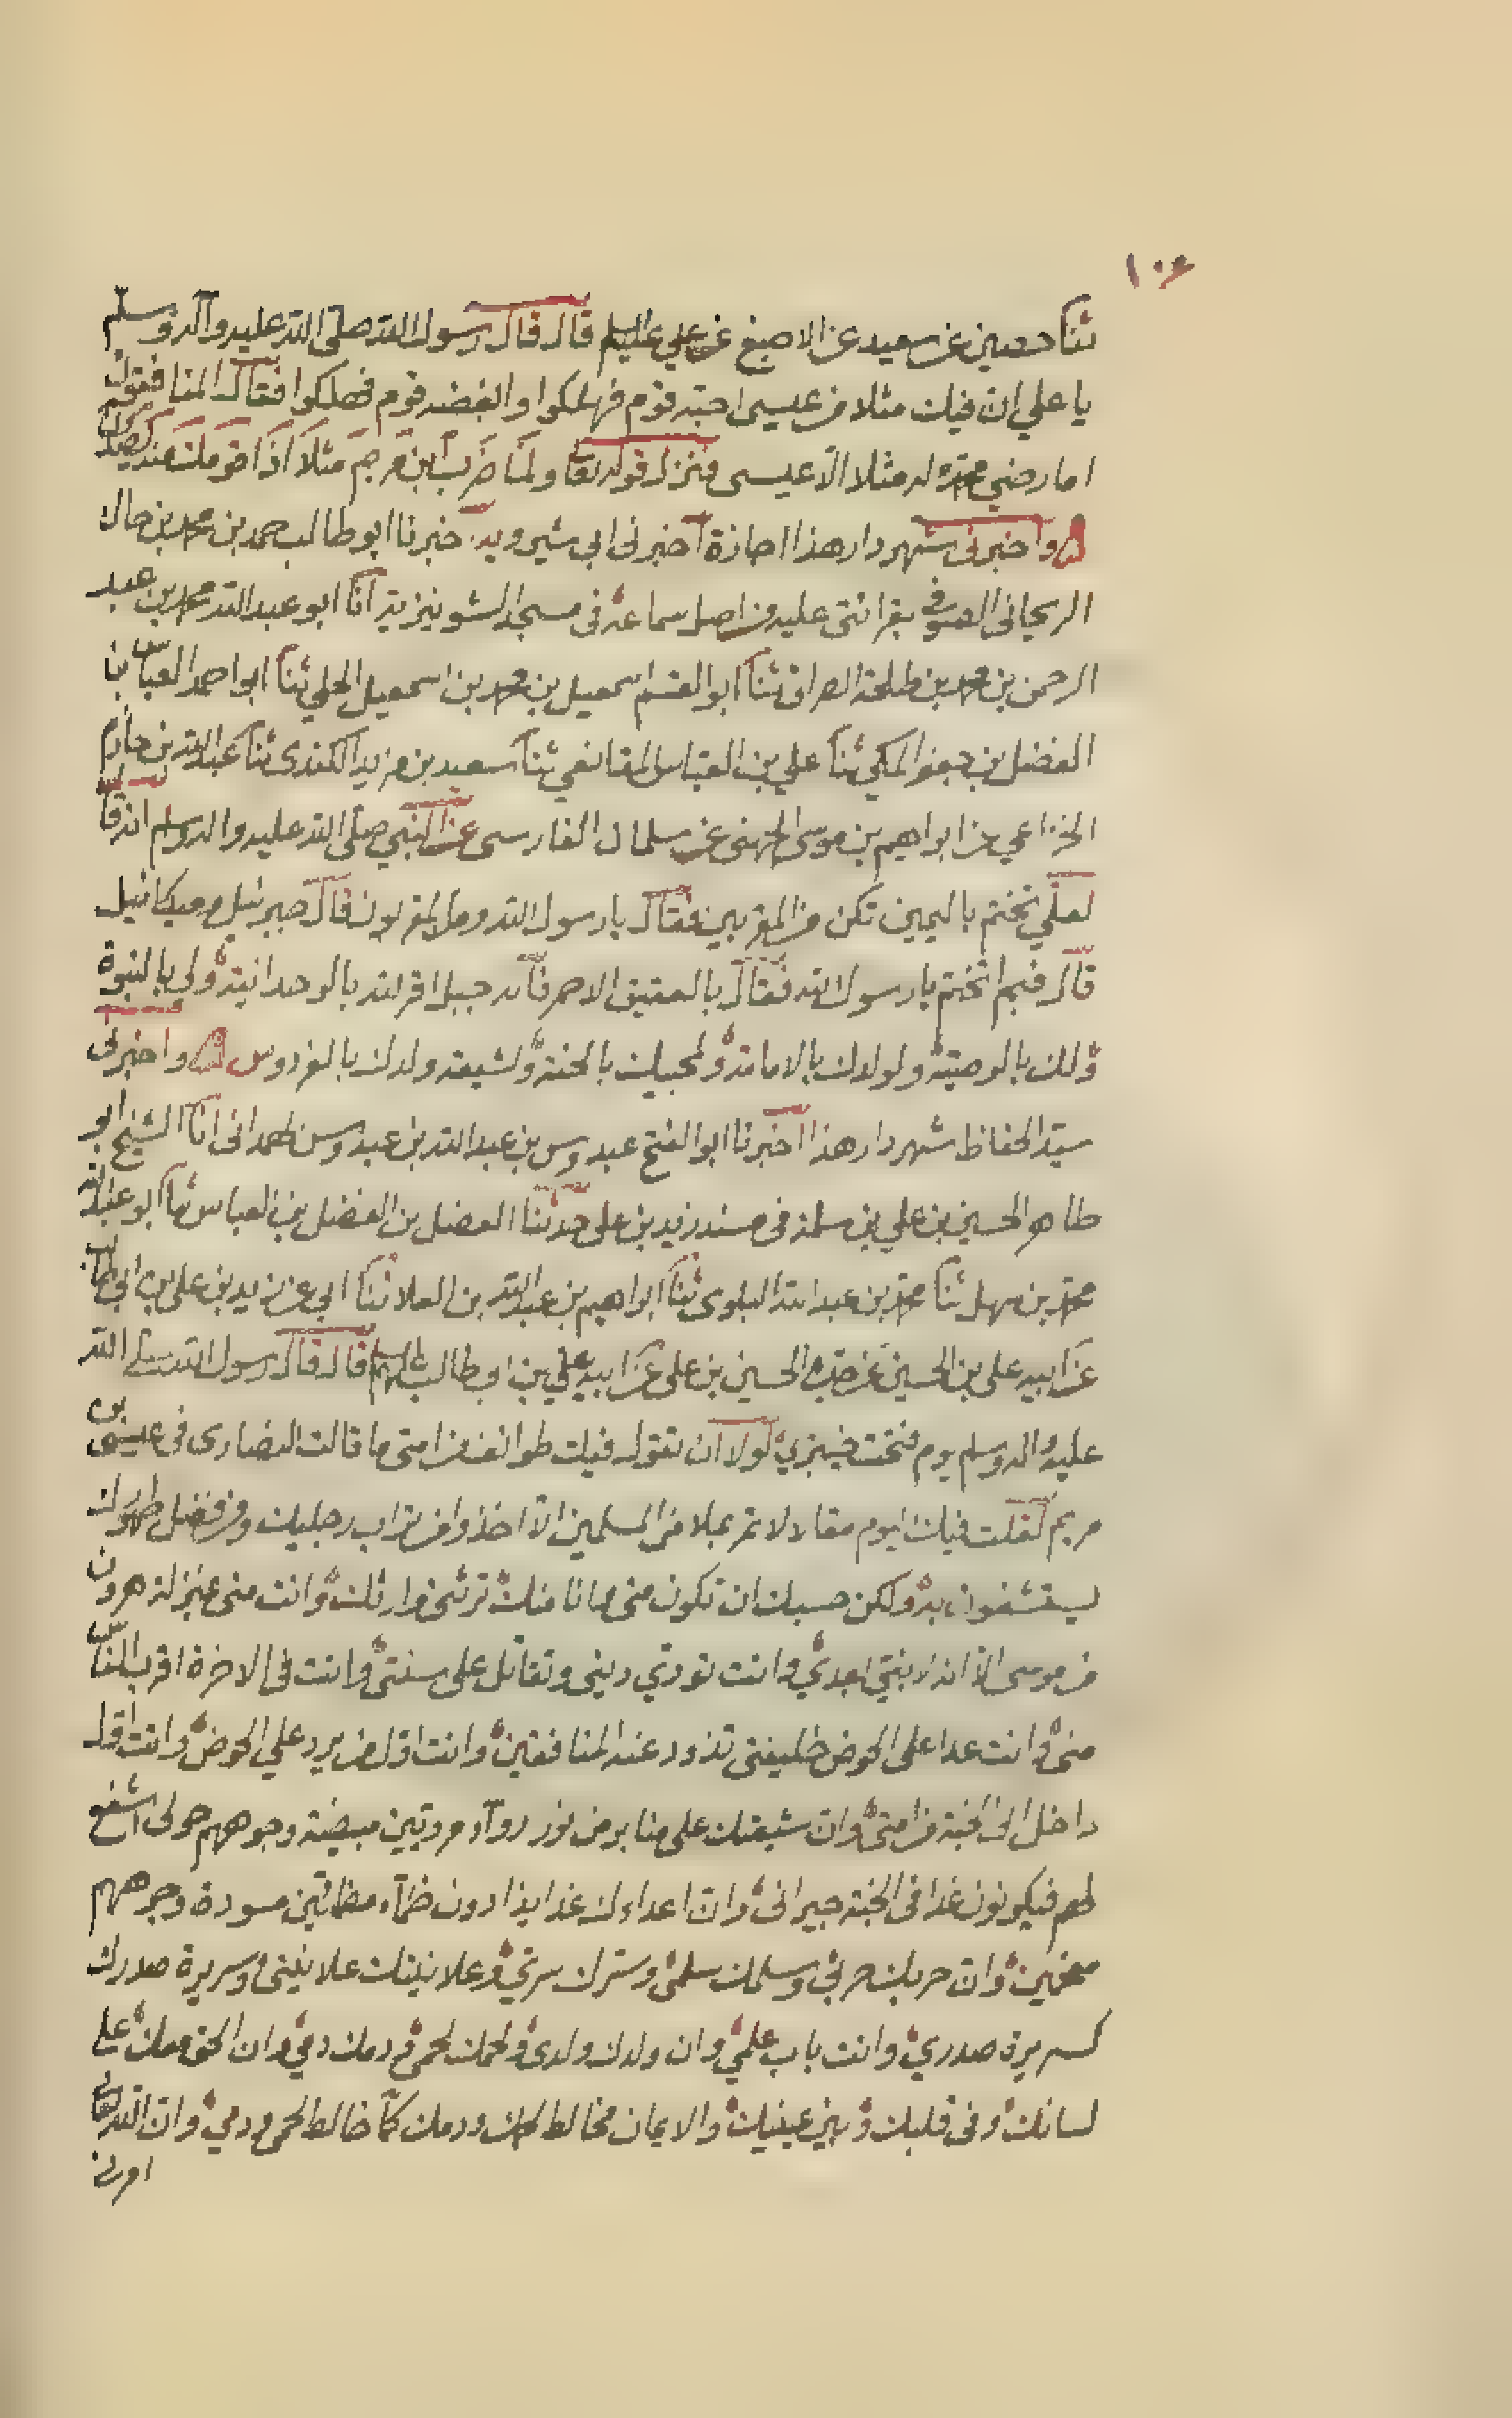 ١٠٤
ثنا حصين عن سعيد عن الاصبغ عن علي عليه السلم قال قال رسول الله صلى الله عليه وآله وسلم
يا علي ان فيك مثلا من عيسى احبه قوم فهلكوا وابغضه قوم فهلكوا فقال المنافقون
اما رضي محمد له مثلا الا عيسى فنزل قوله تعا ولما ضرب ابن مريم مثلا اذا قومك منه يصدون
واخبرنى شهردار هذا اجازة اخبرنى ابى شيرويه اخبرنا ابو طالب احمد بن محمد بن خالد
الريحانى الصوفى بقرائتى عليه من اصل سماعه فى مسجد الشونيزيه انا ابو عبد الله محمد بن عبد
الرحمن بن محمد بن طلحة الصراف ثنا ابو القسم اسمعيل بن محمد بن اسمعيل الحلي ثنا ابو احمد العباس بن
الفضل بن جعفر المكي ثنا علي بن العباس المقانعي ثنا سعيد بن مزيد الكندى ثنا عبد الله بن حازم
الخزاعي عن ابراهيم بن موسى الجهنى عن سلمان الفارسى عن النبي صلى الله عليه واله وسلم انه قال
لعلي تختم باليمين تكن من المقربين فقال يا رسول الله وما المقربون قال جبرئيل وميكائيل
قال فبم اتختم يا رسول الله فقال بالعقيق الاحمر فانه جبل اقر لله بالوحدانية ولى بالنبوة
ولك بالوصية ولولدك بالامامة ولمحبيك بالجنة ولشيعة ولدك بالفردوس واخبرنى
سيد الحفاظ شهردار هذا اخبرنا ابو الفتح عبدوس بن عبد الله بن عبدوس الهمدانى انا الشيخ ابو
طاهر الحسين بن علي بن سلمة فى مسند زيد بن على حدثنا الفضل بن الفضل بن العباس ثنا ابو عبد الله
محمد بن سهل ثنا محمد بن عبد الله البلوى ثنا ابراهيم بن عبد الله بن العلا ثنا ابى عن زيد بن على بن ابى طالب
عن ابيه على بن الحسين عن جده الحسين بن على عن ابيه علي بن ابى طالب عليهم السلم قال قال رسول الله صلى الله
عليه واله وسلم يوم فتحت خيبر لولا ان تقول فيك طوائف من امتى ما قالت النصارى فى عيسى بن
مريم لقلت فيك اليوم مقالا لا تمر بملا من المسلمين الا اخذوا من تراب رجليك وفضل طهورك
يستشفون به ولكن حسبك ان تكون منى وانا منك ترثنى وارثك وانت منى بمنزلة هرون
من موسى الا انه لا نبي بعدي وانت تؤدي دينى وتقاتل على سنتى وانت فى الاخرة اقرب الناس
منى وانت غدا على الحوض خليفتى تذود عنه المنافقين وانت اول من يرد علي الحوض وانت اول
داخل الى الجنة من امتى وان شيعتك على منابر من نور رواء مرويين مبيضة وجوههم حولى اشفع
لهم فيكونون غدا فى الجنة جيرانى وان اعداءك غدا ظمآء مظمائين مسودة وجوههم
مقمحين وان حربك حربى وسلمك سلمى وسرك سرى وعلانيتك علانيتى وسريرة صدرك
كسريرة صدرى وانت باب علمى وان ولدك ولدى ولحمك لحمى ودمك دمى وان الحق معك على
لسانك وفى قلبك وبين عينيك والايمان مخالط لحمك ودمك كما خالط لحمى ودمى وان الله تعا
امرنى